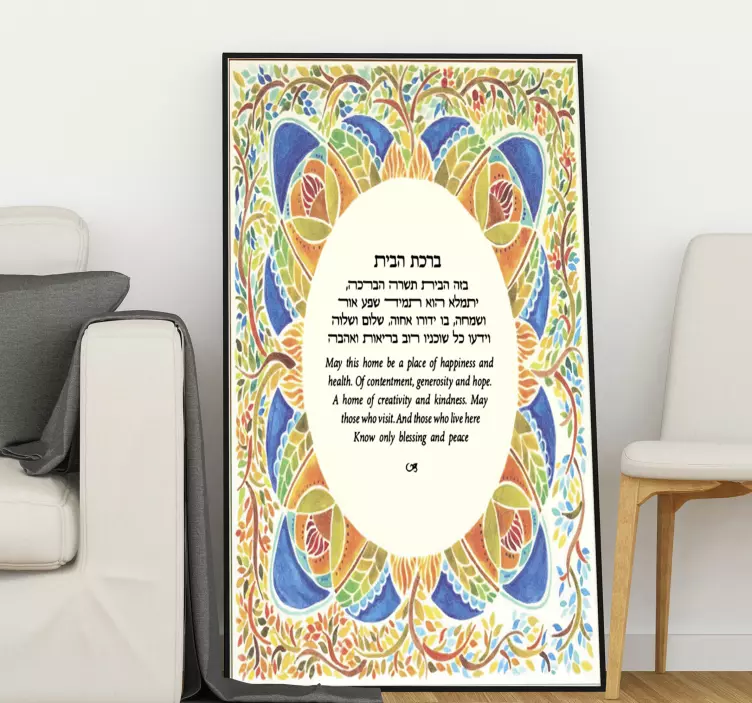 ברכת הבית
בזה הבית תשרה הברכה,
יתמלא הוא תמיד שפע אור
ושמחה, בו ידורו אחוה, שלום ושלוה
וידעו כל שוכניו רוב בריאות ואהבה
May this home be a place of happiness and
health. Of contentment, generosity and hope.
A home of creativity and kindness. May
those who visit. And those who live here
Know only blessing and peace